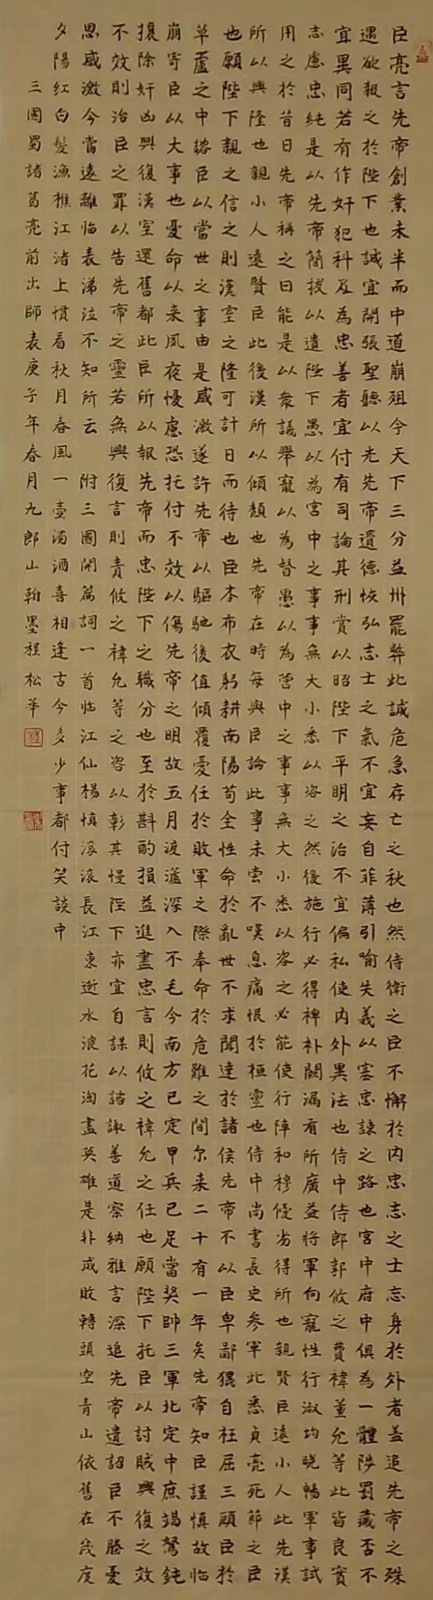 臣亮言先帝創業未半而中道崩殂今天下三分益州罷弊此誠危急存亡之秋也然侍衛之臣不懈於內忠志之士忘身於外者蓋追先帝之殊
遇欲報之於陛下也誠宜開張聖聽以光先帝遺德恢弘志士之氣不宜妄自菲薄引喻失義以塞忠諫之路也宮中府中俱為一體陟罰臧否不
宜異同若有作奸犯科及為忠善者宜付有司論其刑賞以昭陛下平明之治不宜偏私使內外異法也侍中侍郎郭攸之費禕董允等此皆良實
志慮忠純是以先帝簡拔以遺陛下愚以為宮中之事事無大小悉以咨之然後施行必得裨補闕漏有所廣益將軍向寵性行淑均曉暢軍事試
用之於昔日先帝稱之曰能是以眾議舉寵以為督愚以為營中之事事無大小悉以咨之必能使行陣和穆優劣得所也親賢臣遠小人此先漢
所以興隆也親小人遠賢臣此後漢所以傾頹也先帝在時每與臣論此事未嘗不嘆息痛恨於桓靈也侍中尚書長史參軍此悉貞亮死節之臣
也願陛下親之信之則漢室之隆可計日而待也臣本布衣躬耕南陽苟全性命於亂世不求聞達於諸侯先帝不以臣卑鄙猥自枉屈三顧臣於
草廬之中諮臣以當世之事由是感激遂許先帝以驅馳後值傾覆受任於敗軍之際奉命於危難之間尔來二十有一年矣先帝知臣謹慎故臨
崩寄臣以大事也受命以來夙夜憂慮恐托付不效以傷先帝之明故五月渡瀘深入不毛今南方已定甲兵已足當獎帥三軍北定中庶竭駑鈍
攘除奸凶興復漢室還舊都此臣所以報先帝而忠陛下之職分也至於斟酌損益進盡忠言則攸之禕允之任也願陛下托臣以討賊興復之效
不效則治臣之罪以告先帝之靈若無興復言則責攸之禕允等之咎以彰其慢陛下亦宜自謀以諮諏善道察納雅言深追先帝遺詔臣不勝受
恩感激今當遠離臨表涕泣不知所云 附三國開篇詞一首臨江仙楊慎滾滾長江東逝水浪花淘盡英雄是非成敗轉頭空青山依舊在幾度
夕陽紅白髮漁樵江渚上慣看秋月春風一壺濁酒喜相逢古今多少事都付笑談中
三國蜀諸葛亮前出師表庚子年春月九郎山翰墨程松華